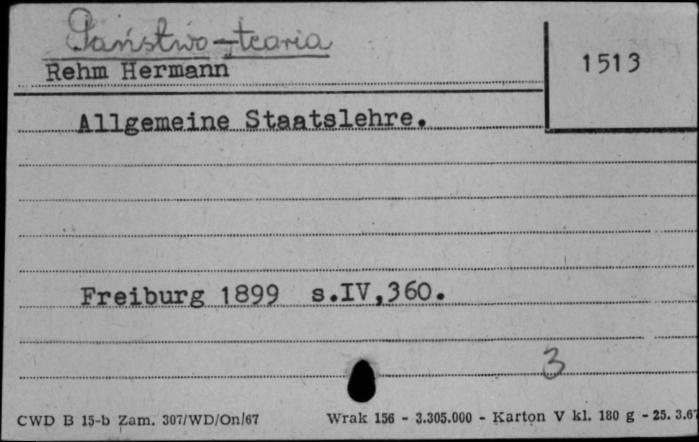 Państwo - teoria
Rehm Hermann
1513
Allgemeine Staatslehre.
Freiburg 1899 s.IV,360.
3
CWD B 15-b Zam. 307/WD/On/67 Wrak 156 - 3.305.000 - Karton V kl. 180 g - 25.3.67